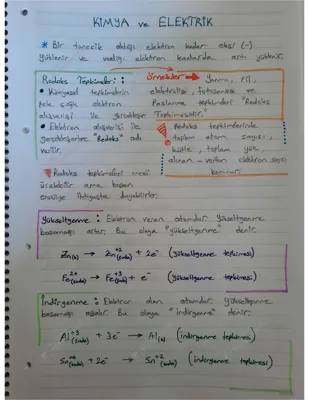 KİMYA ve ELEKTRİK
* Bir tanecik aldığı elektron kadar eksi (-)
yüklenir ve verdiği elektron kadarda artı yüklenir.
Redoks Tepkimeleri :
• Kimyasal tepkimelerin
pek çoğu elektron
alışverişi ile gerçekleşir.
• Elektron alışverişi ile
gerçekleşenlere "Redoks" adı
verilir.
Örnekler → Yanma, pil,
elektroliz, fotosentez ve
Paslanma tepkimeleri "Redoks
Tepkimesidir."
Redoks tepkimelerinde
toplam atom sayısı,
kütle, toplam yük,
alınan - verilen elektron sayısı
korunur.
Redoks tepkimeleri enerji
üretebilir ama bazen
enerjiye ihtiyaçta duyabilirler.
Yükseltgenme : Elektron veren atomdur. Yükseltgenme
basamağı artar. Bu olaya "yükseltgenme" denir.
Zn(k) → Zn+2(suda) + 2e- (Yükseltgenme tepkimesi)
Fe2+(suda) → Fe+3(suda) + e- (Yükseltgenme tepkimesi)
İndirgenme : Elektron alan atomdur. Yükseltgenme
basamağı azalır. Bu olaya "İndirgenme" denir.
Al+3(suda) + 3e- → Al(k) (indirgenme tepkimesi)
Sn+4(suda) + 2e- → Sn+2(suda) (indirgenme tepkimesi)